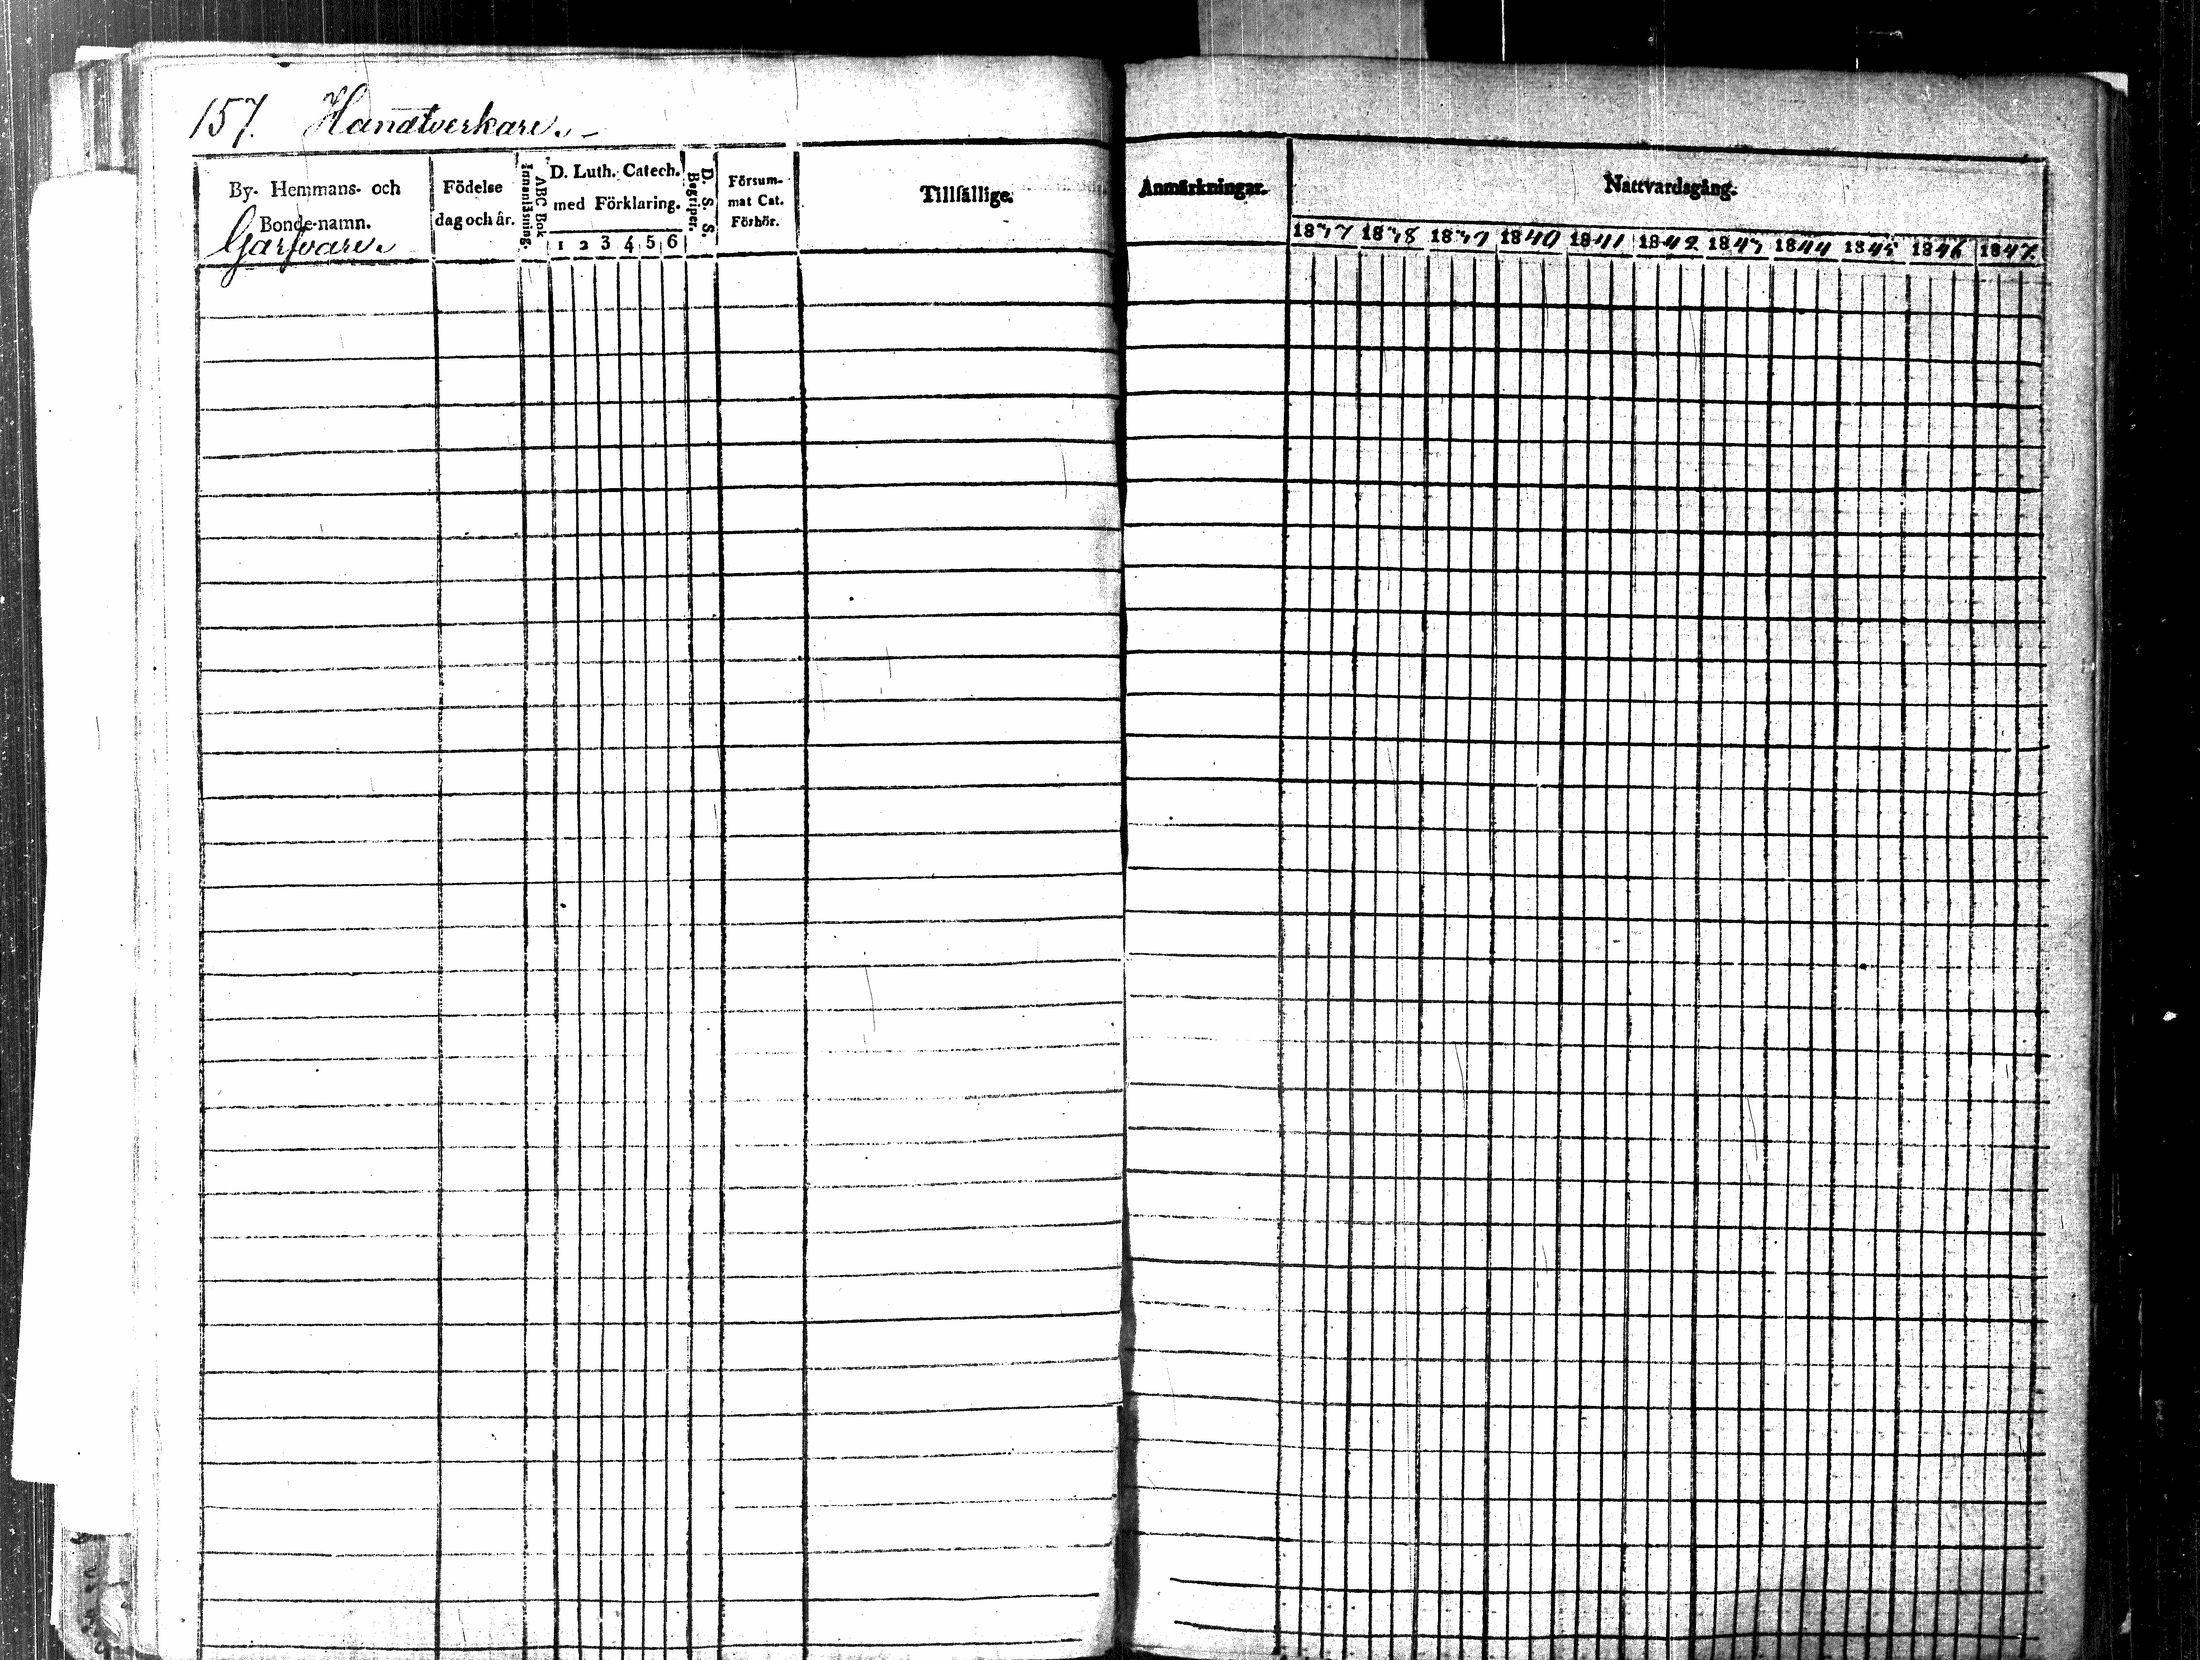 157. Handtverkare.
By- Hemmans- och
Bonde-namn.
Garfvare.
Födelse
dag och år.
Innanläsning.
ABC Bok
D. Luth. Catech.
med Förklaring.
1 2 3 4 5 6
D. S. S.
Begriper.
Försum-
mat Cat.
Förhör.
Tillfällige.
Anmärkningar.
Nattvardsgång.
1837 1838 1839 1840 1841 1842 1843 1844 1845 1846 1847.